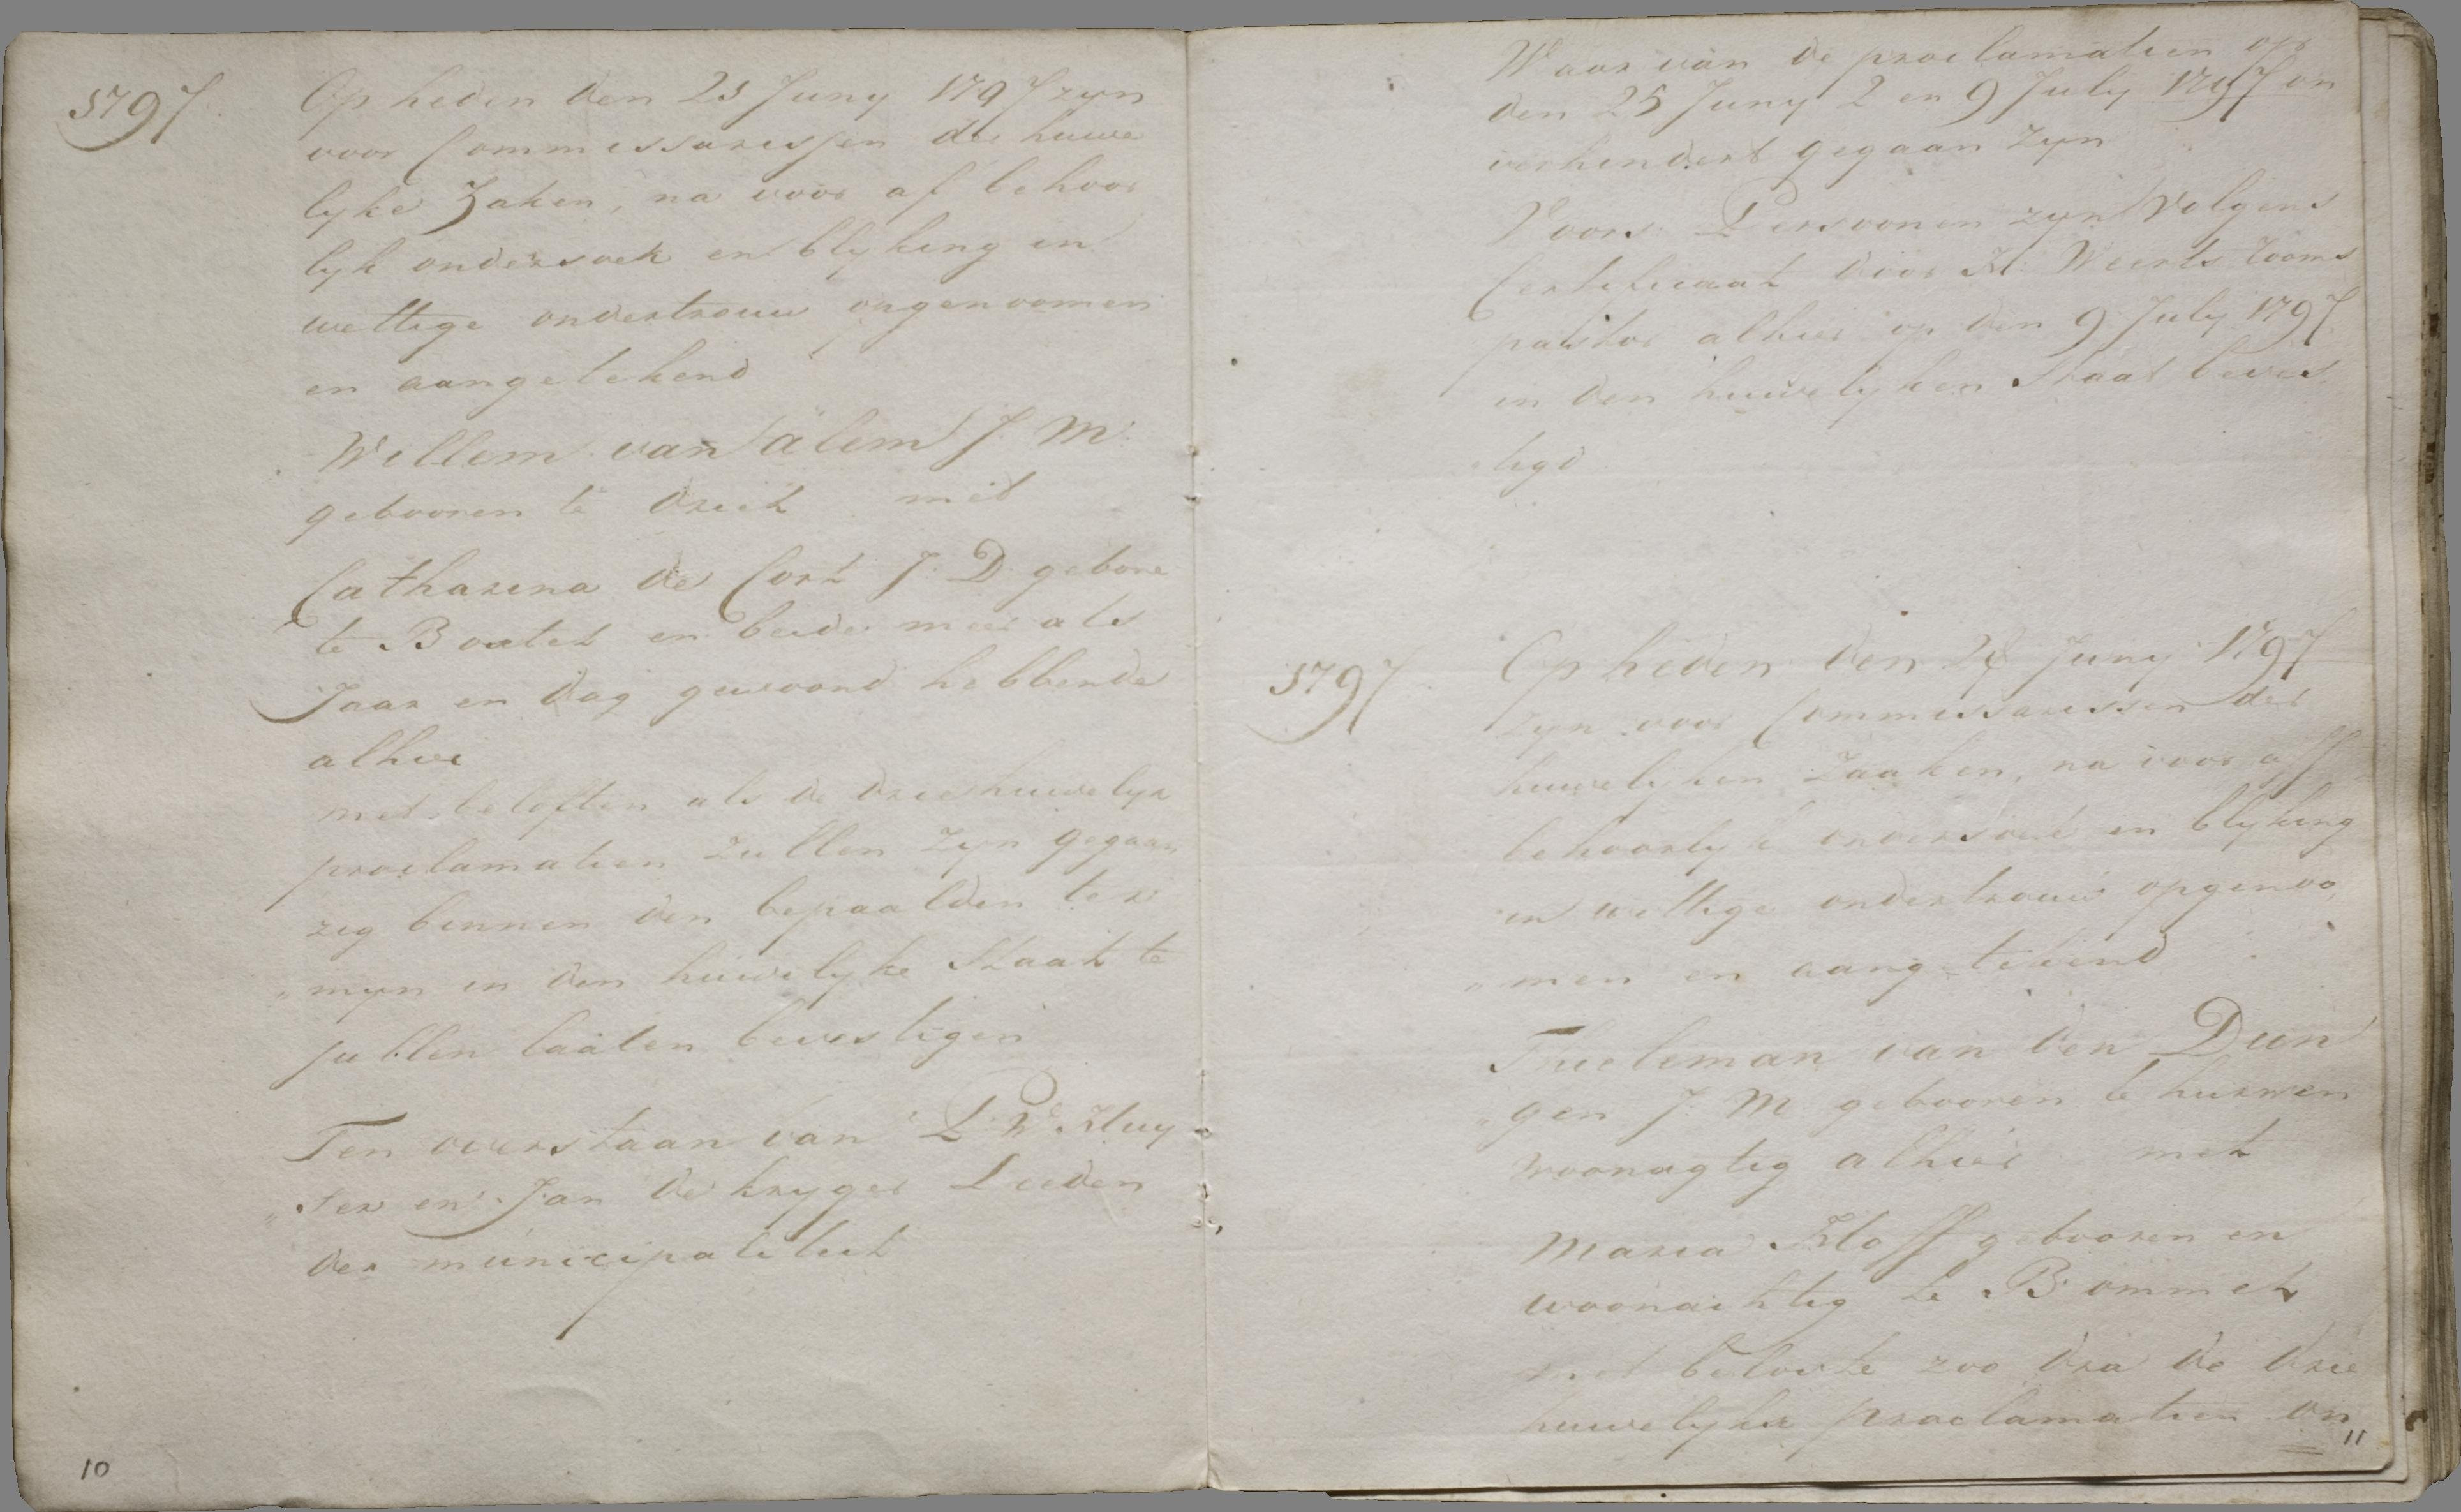 1797
Op heden den 23 Juny 1797 zyn
voor Commissarissen der huwe
lyke Zaken, na voor af behoor
lyk ondersoek en blyking in
wettige ondertrouw opgenoomen
en aangetekend
Willem van Alem J. M.
gebooren te Driel met
Catharina de Cort J. D. gebore
te Boxtel en beide meer als
Jaar en dag gewoond hebbende
alhier
met beloften als de drie huwelyx
proclamatien zullen zyn gegaan
zig binnen den bepaalden ter
„myn in den huwelyke Staat te
sullen laaten bevestigen
Ten overstaan van P. W. Kluy
„ser en Jan de kryger Leeden
der municipaliteit
10
Waar van de proclamatien op
den 25 Juny 2 en 9 July 1797 on
verhindert gegaan zyn
Voors. Persoonen zyn volgens
Certificaat door K. Weerts rooms
pastor alhier op den 9 July 1797
in den huwelyken Staat beves
tigd
1797
Op heden den 24 Juny 1797
zyn voor Commissarissen der
huwelyken Zaaken, na voor aff
behoorlyk ondersoek en blyking
in wettige ondertrouw opgenoo
„men en aangetekend
Thieleman van den Dun
„gen J. M. gebooren te hurwen
woonagtig alhier met
Maria Kloff gebooren en
woonachtig te Bommel
met belofte zoo dra de drie
huwelykse proclamatien on
11